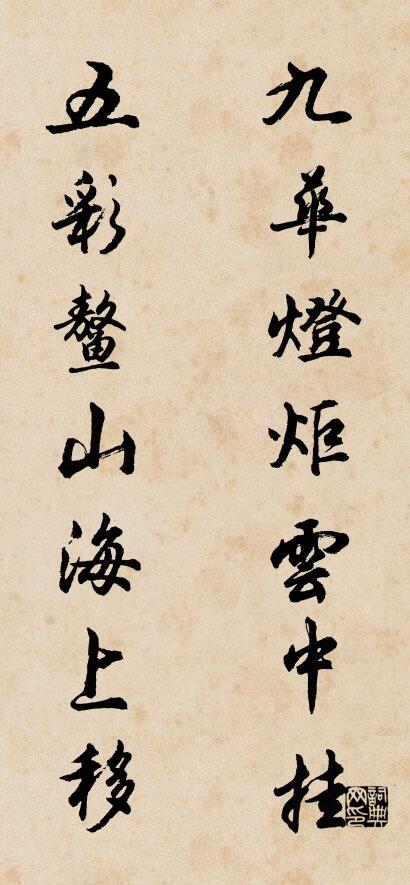 九華燈炬雲中挂
五彩鰲山海上移
詞典网印